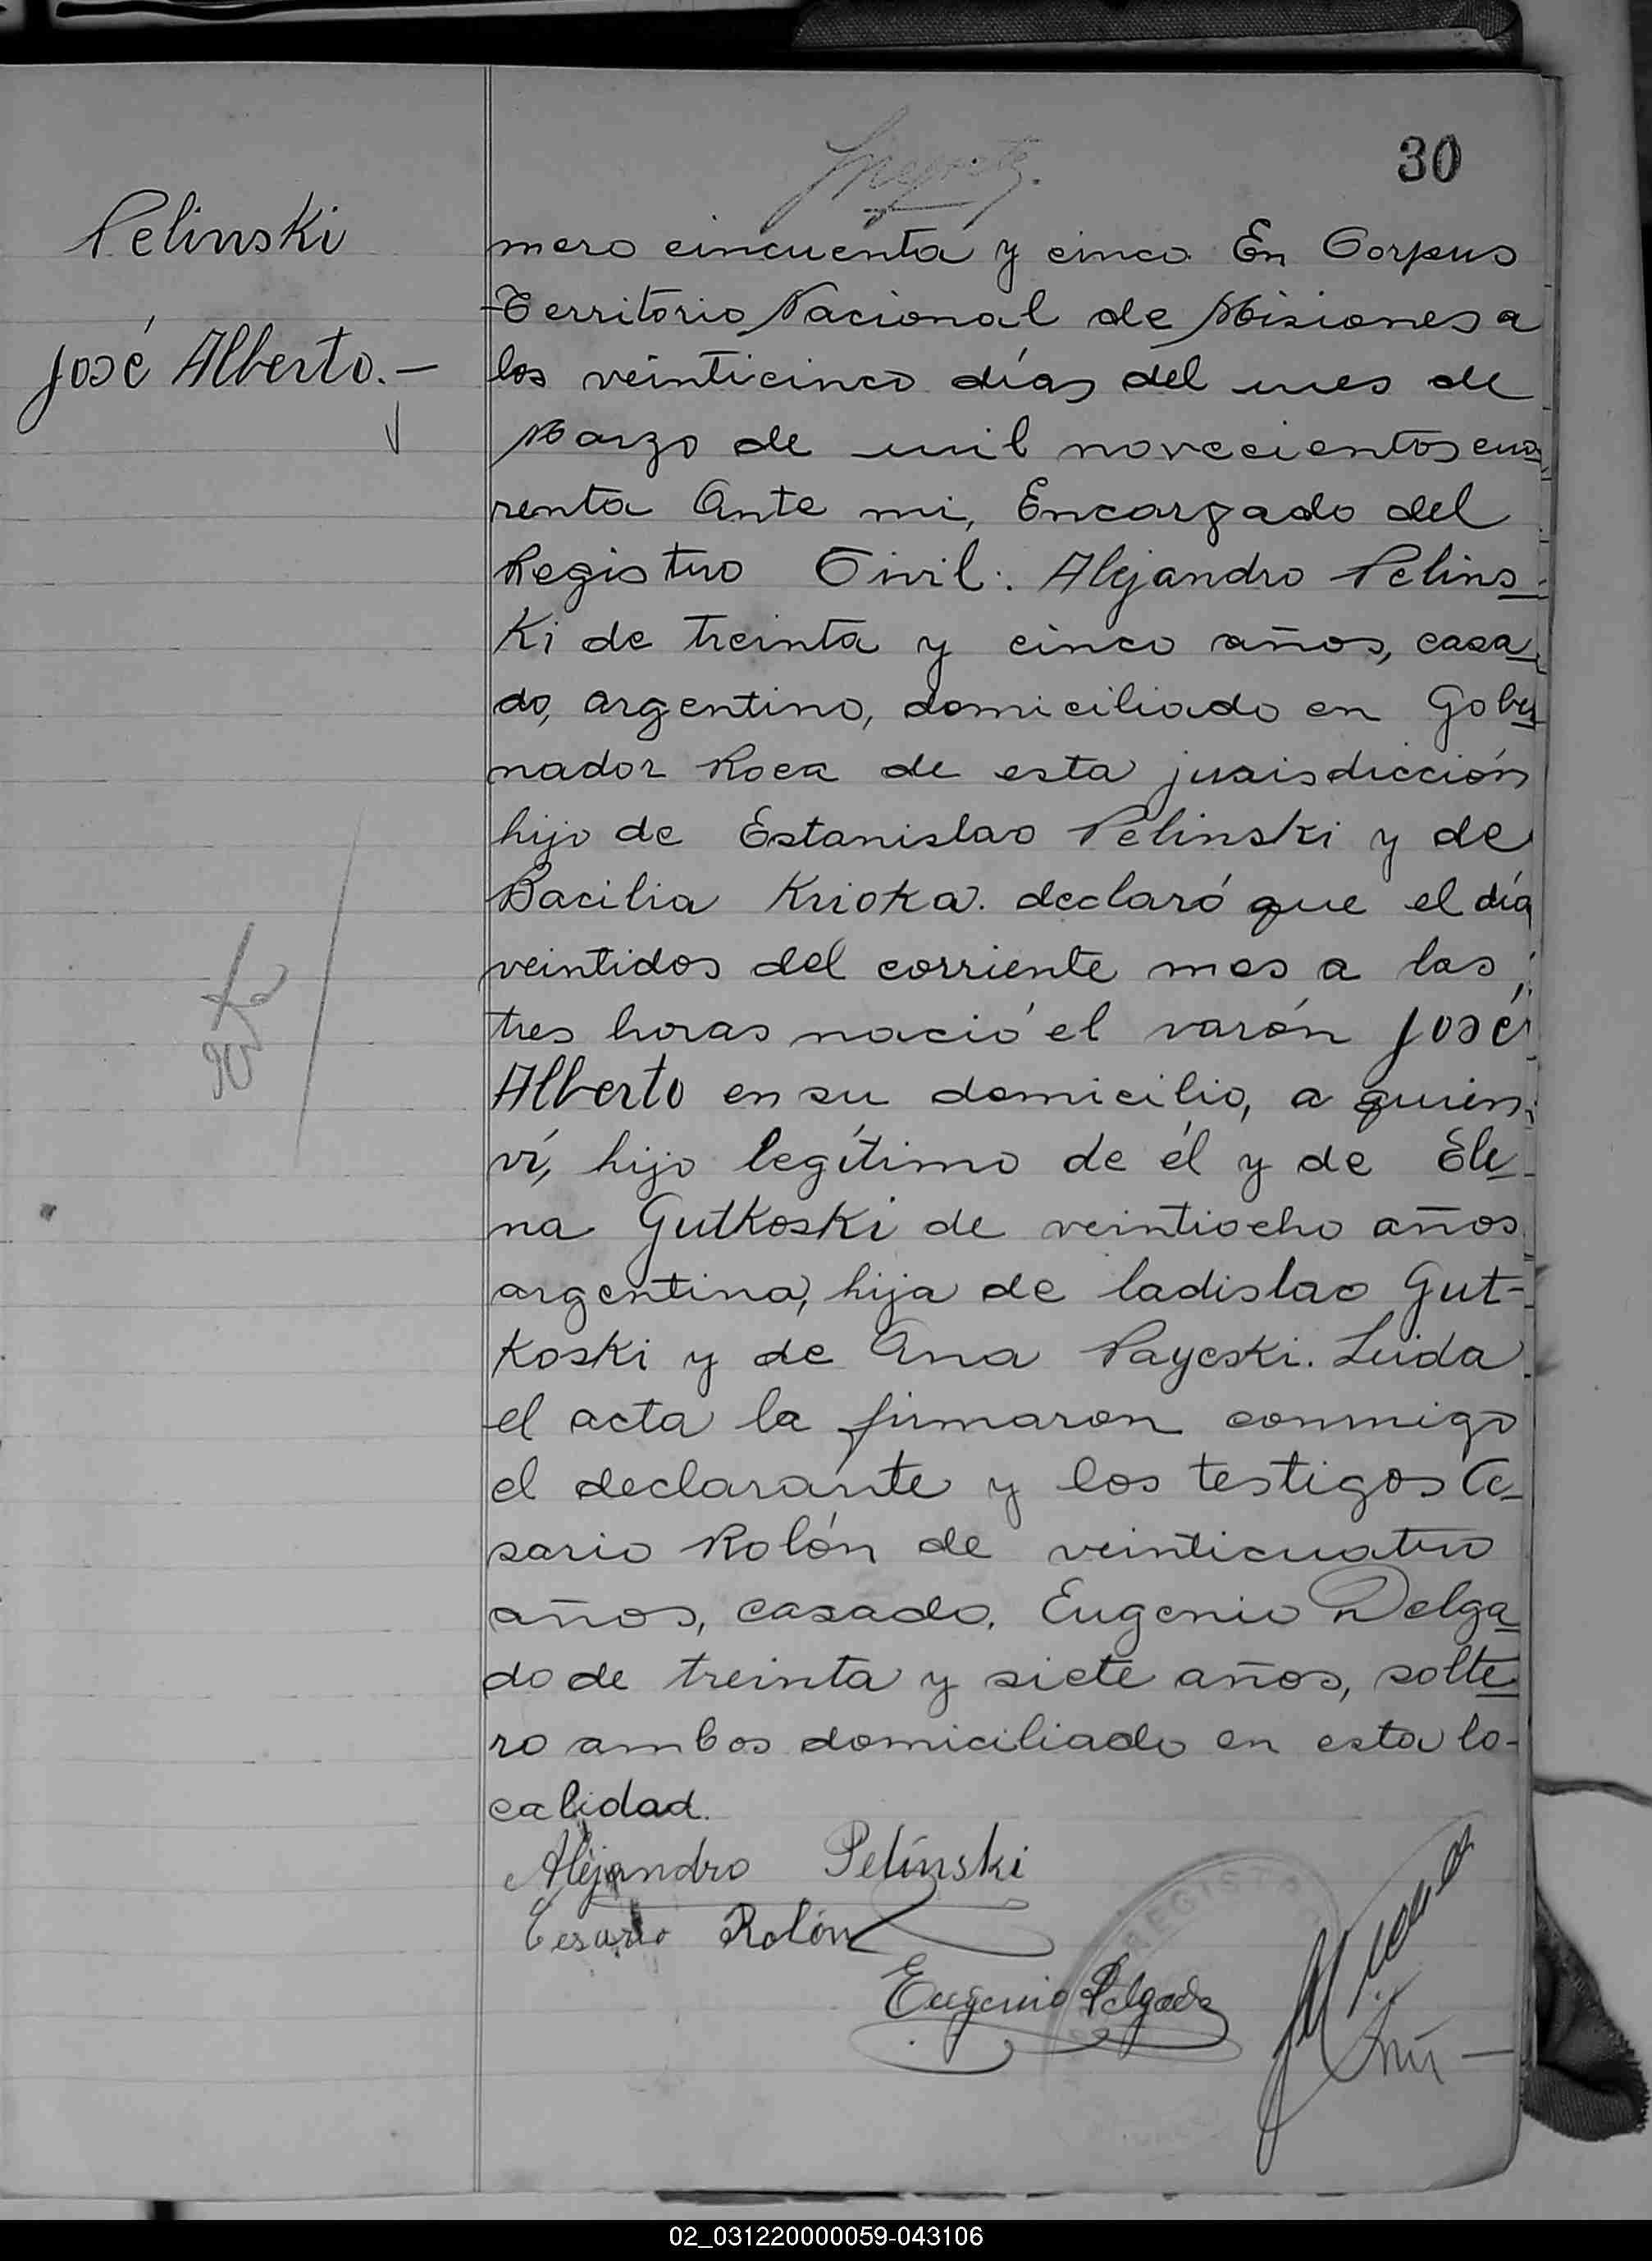 30
Pelinski
José Alberto.-
mero cincuenta y cinco. En Corpus
Territorio Nacional de Misiones a
los veinticinco días del mes de
Marzo de mil novecientos cua
renta Ante mi, Encargado del
Registro Civil: Alejandro Pelins-
Ki de treinta y cinco años, casa
do, argentino, domiciliado en Gober
nador Roca de esta jurisdicción
hijo de Estanislao Pelinski y de
Bacilia Krioka. declaró que el día
veintidos del corriente mes a las
tres horas nació el varón José
Alberto en su domicilio, a quien
ví, hijo legítimo de él y de Ele-
na Gutkoski de veintiocho años
argentina, hija de ladislao Gut-
koski y de Ana Payeski. Leida
el acta la firmaron conmigo
el declarante y los testigos Ce-
sario Rolón de veinticuatro
años, casado. Eugenio Delga
do de treinta y siete años, solte
ro ambos domiciliado en esta lo-
calidad.
Alejandro Pelinski
Cesario Rolón
Eugenio Delgado
REGIST
02_031220000059-043106